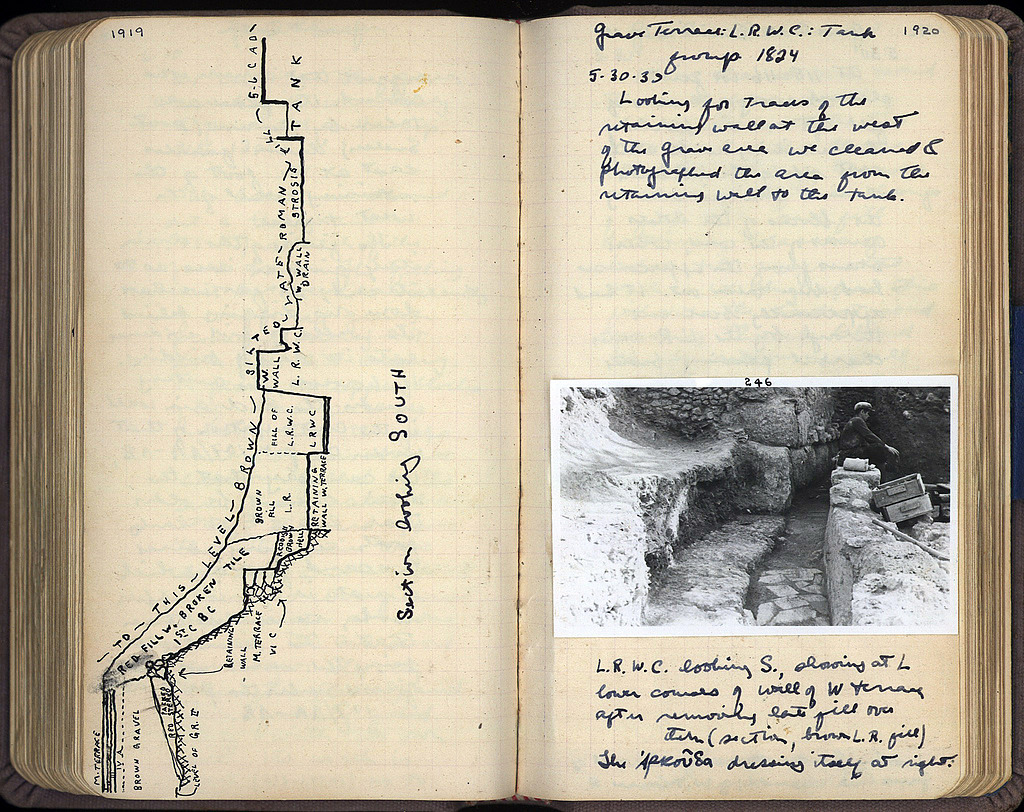 1919
5-6 C AD
TANK
LATE ROMAN FILL
STROSIS
W. WALL
DRAIN
SILT
W. WALL
L.R.W.C.
FILL OF
L.R.W.C.
LRWC
BROWN
FILL
L.R.
RETAINING
WALL W. TERRACE
REDDISH
BROWN
- TO - THIS - LEVEL - BROWN -
RED FILL W. BROKEN TILE
1ST C BC
RETAINING
WALL
M. TERRACE
VI C
M. TERRACE
IV A
BROWN GRAVEL
RED
LEVEL OF G.R. II
Section looking SOUTH
1920
Grave Terrace: L.R.W.C.: Tank
group 1824
5-30-39
Looking for traces of the
retaining wall at the west
of the grave area we cleaned &
photographed the area from the
retaining wall to the Tank.
246
L.R.W.C. looking S., showing at L
lower courses of wall of W terrace
after removing late fill over
item (section, brown L.R. fill)
The ἀρκούδα dressing itself at right.